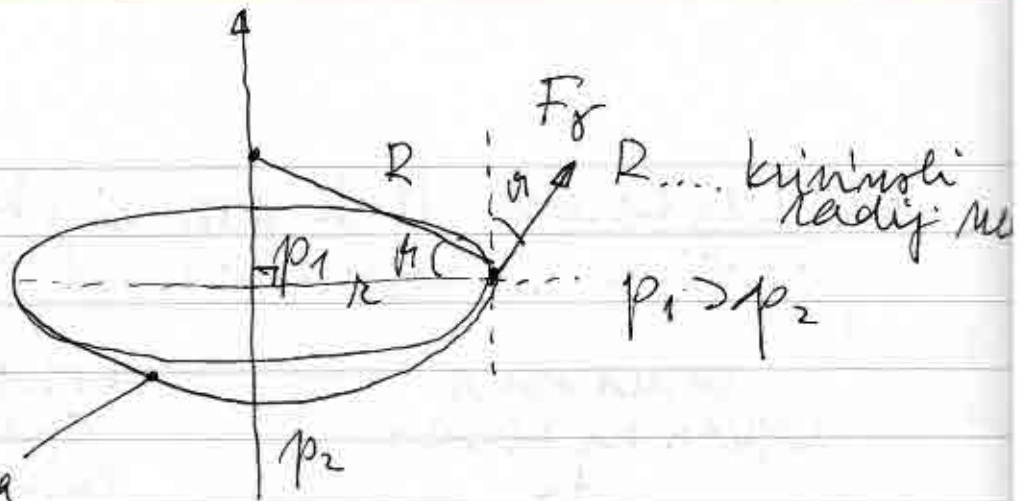 F_γ
R
R.... krivinski
radij
ϑ
p₁
ϑ
r
p₁ > p₂
p₂
a